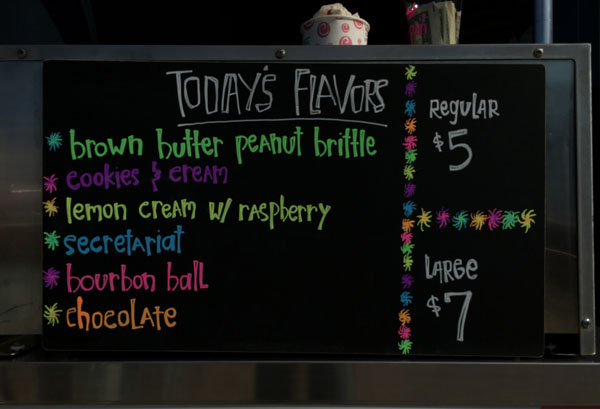 TODAY'S FLAVORS
brown butter peanut brittle
cookies & cream
lemon cream w/ raspberry
secretariat
bourbon ball
chocolate
Regular
$5
Large
$7